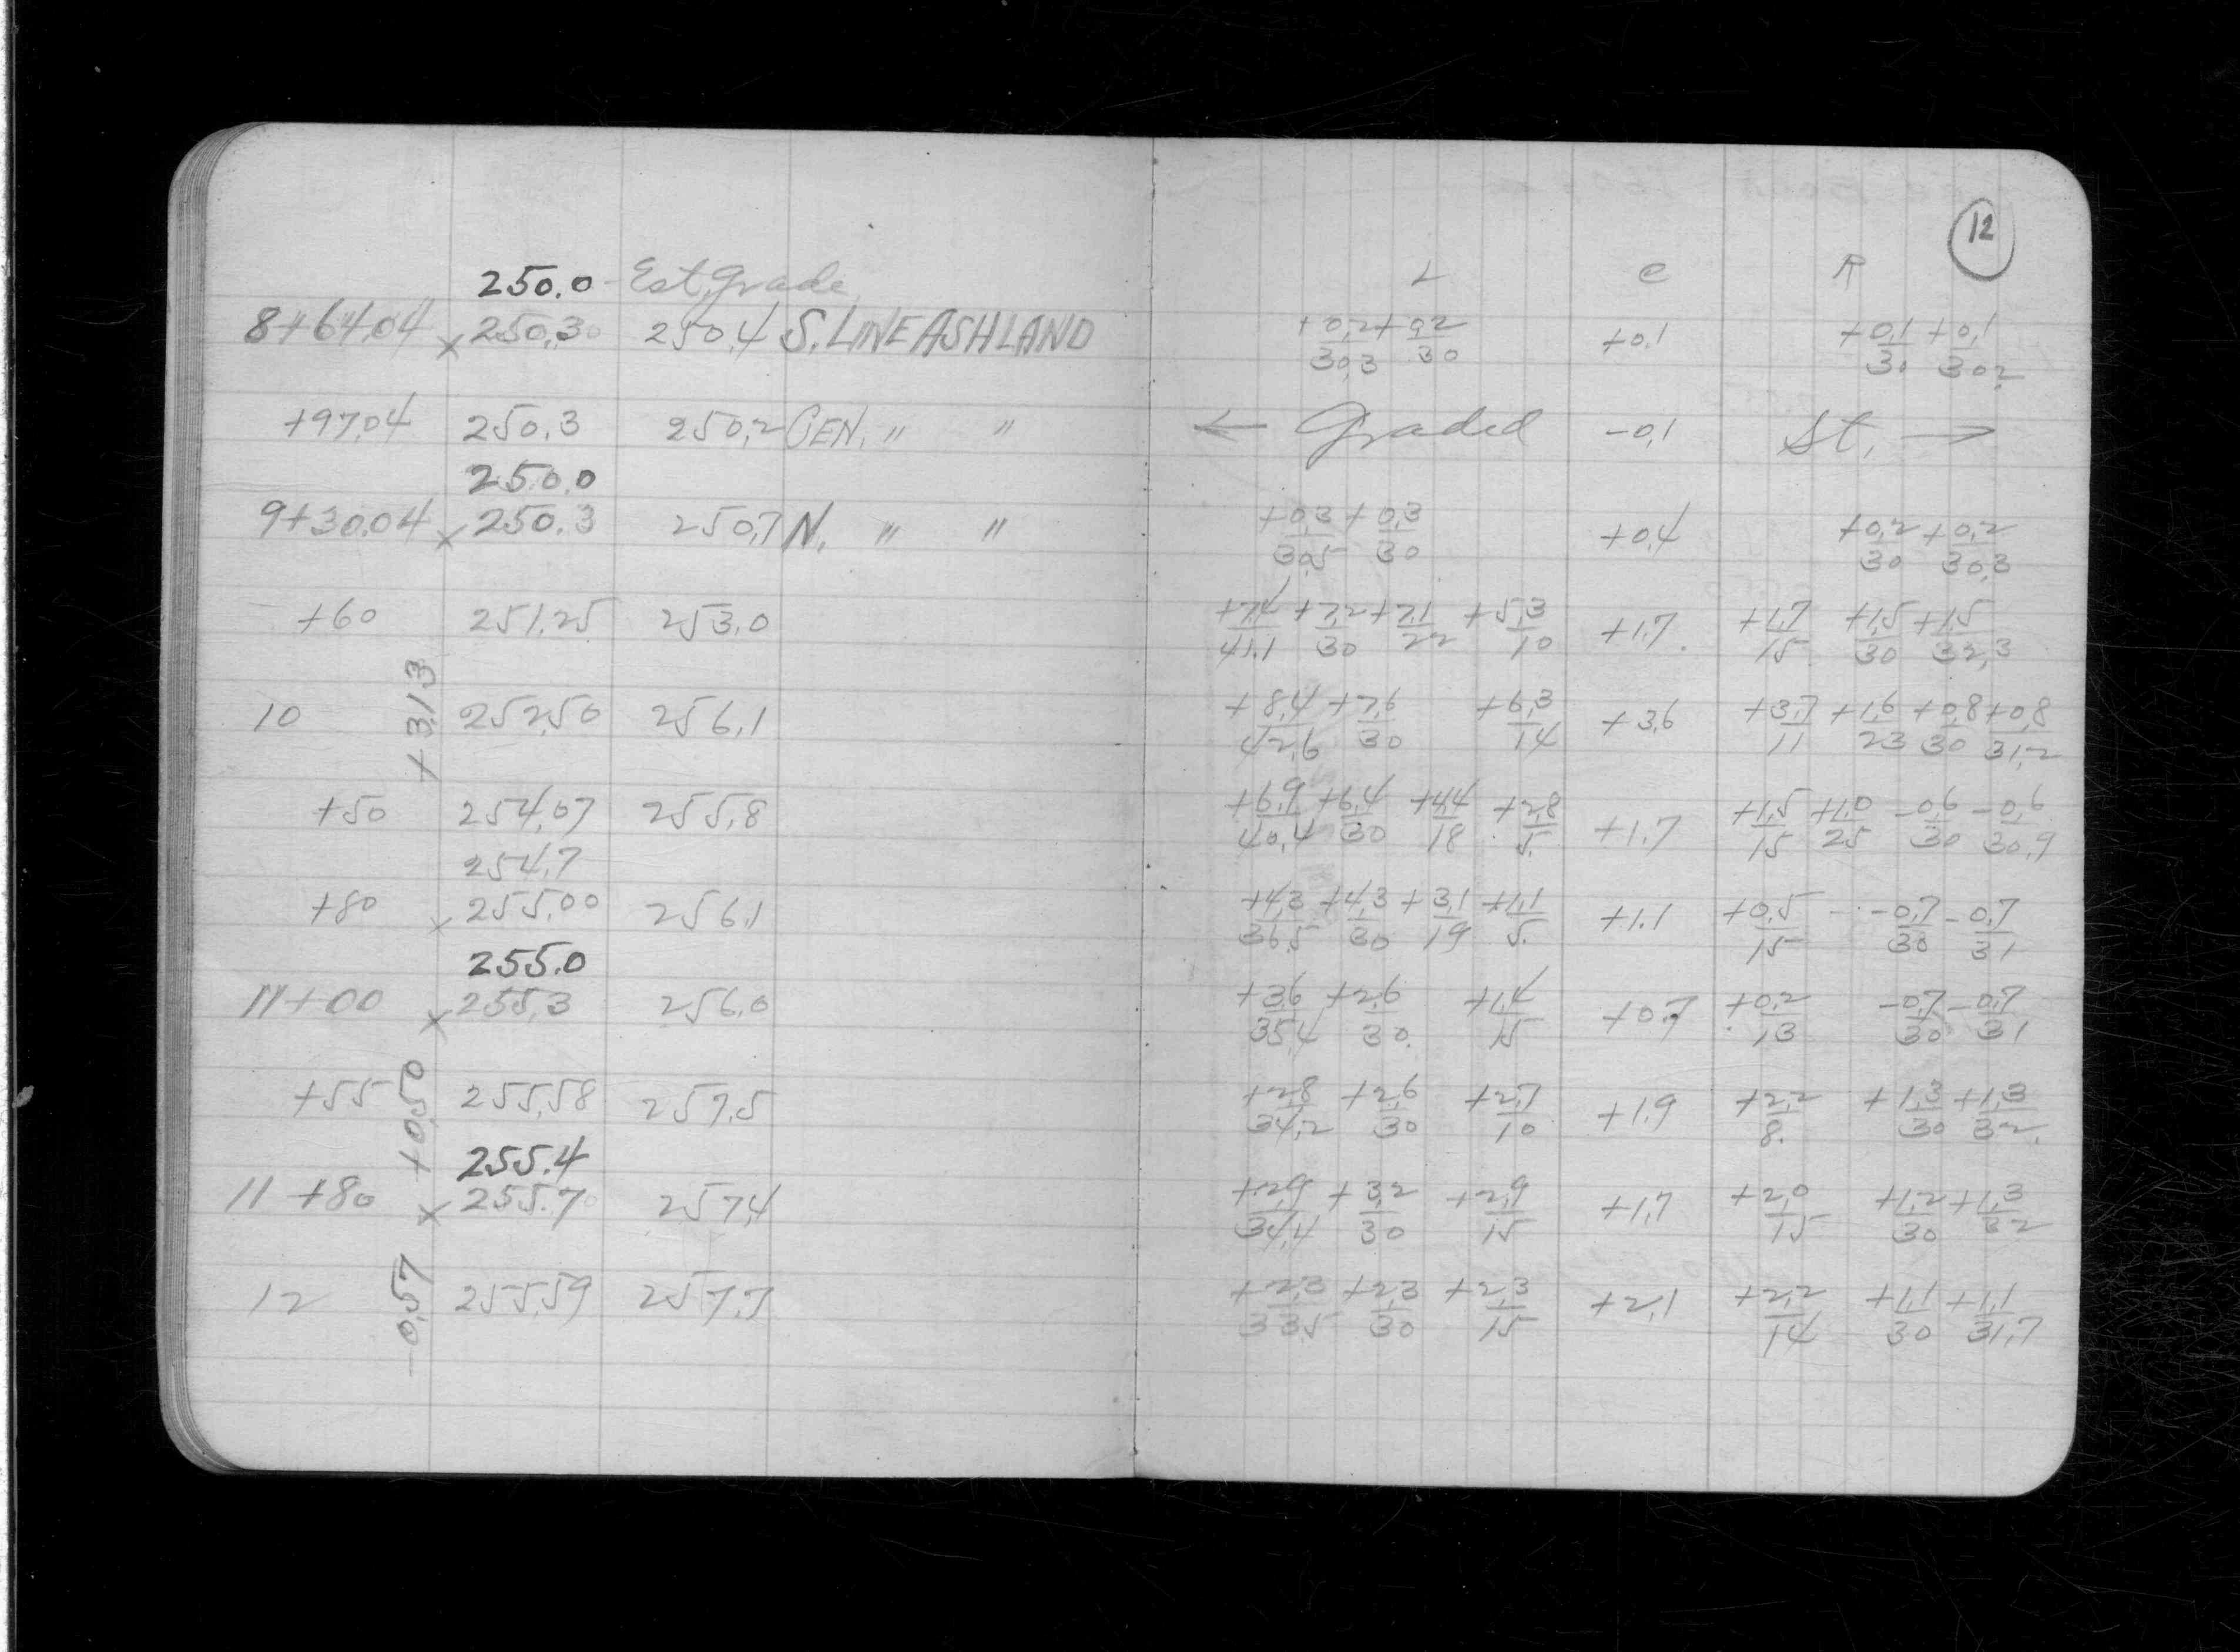 12
250.0 - Est. grade L c R
8+64.04 x 250.30 250.4 S. LINE ASHLAND +0.2/30.3 +0.2/30 +0.1 +0.1/30 +0.1/30.2
+97.04 250.3 250.2 CEN. " " ← Graded -0.1 St. →
250.0
9+30.04 x 250.3 250.7 N. " " +0.3/30.5 +0.3/30 +0.4 +0.2/30 +0.2/30.3
+60 251.25 253.0 +7.4/41.1 +7.2/30 +7.1/22 +5.3/10 +1.7 +1.7/15 +1.5/30 +1.5/32.3
+3.13
10 252.50 256.1 +8.4/42.6 +7.6/30 +6.3/14 +3.6 +3.7/11 +1.6/23 +0.8/30 +0.8/31.2
+50 254.07 255.8 +6.9/40.4 +6.4/30 +4.4/18 +2.8/5 +1.7 +1.5/15 +1.0/25 -0.6/30 -0.6/30.9
254.7
+80 x 255.00 256.1 +4.3/36.5 +4.3/30 +3.1/19 +1.1/5 +1.1 +0.5/15 -0.7/30 -0.7/31
255.0
11+00 x 255.3 256.0 +3.6/35.4 +2.6/30 +1.4/15 +0.7 +0.2/13 -0.7/30 -0.7/31
+0.50
+55 255.58 257.5 +2.8/34.2 +2.6/30 +2.7/10 +1.9 +2.2/8 +1.3/30 +1.3/32
255.4
11+80 x 255.70 257.4 +2.9/34.4 +3.2/30 +2.9/15 +1.7 +2.0/15 +1.2/30 +1.3/32
-0.57
12 255.59 257.7 +2.3/33.5 +2.3/30 +2.3/15 +2.1 +2.2/14 +1.1/30 +1.1/31.7